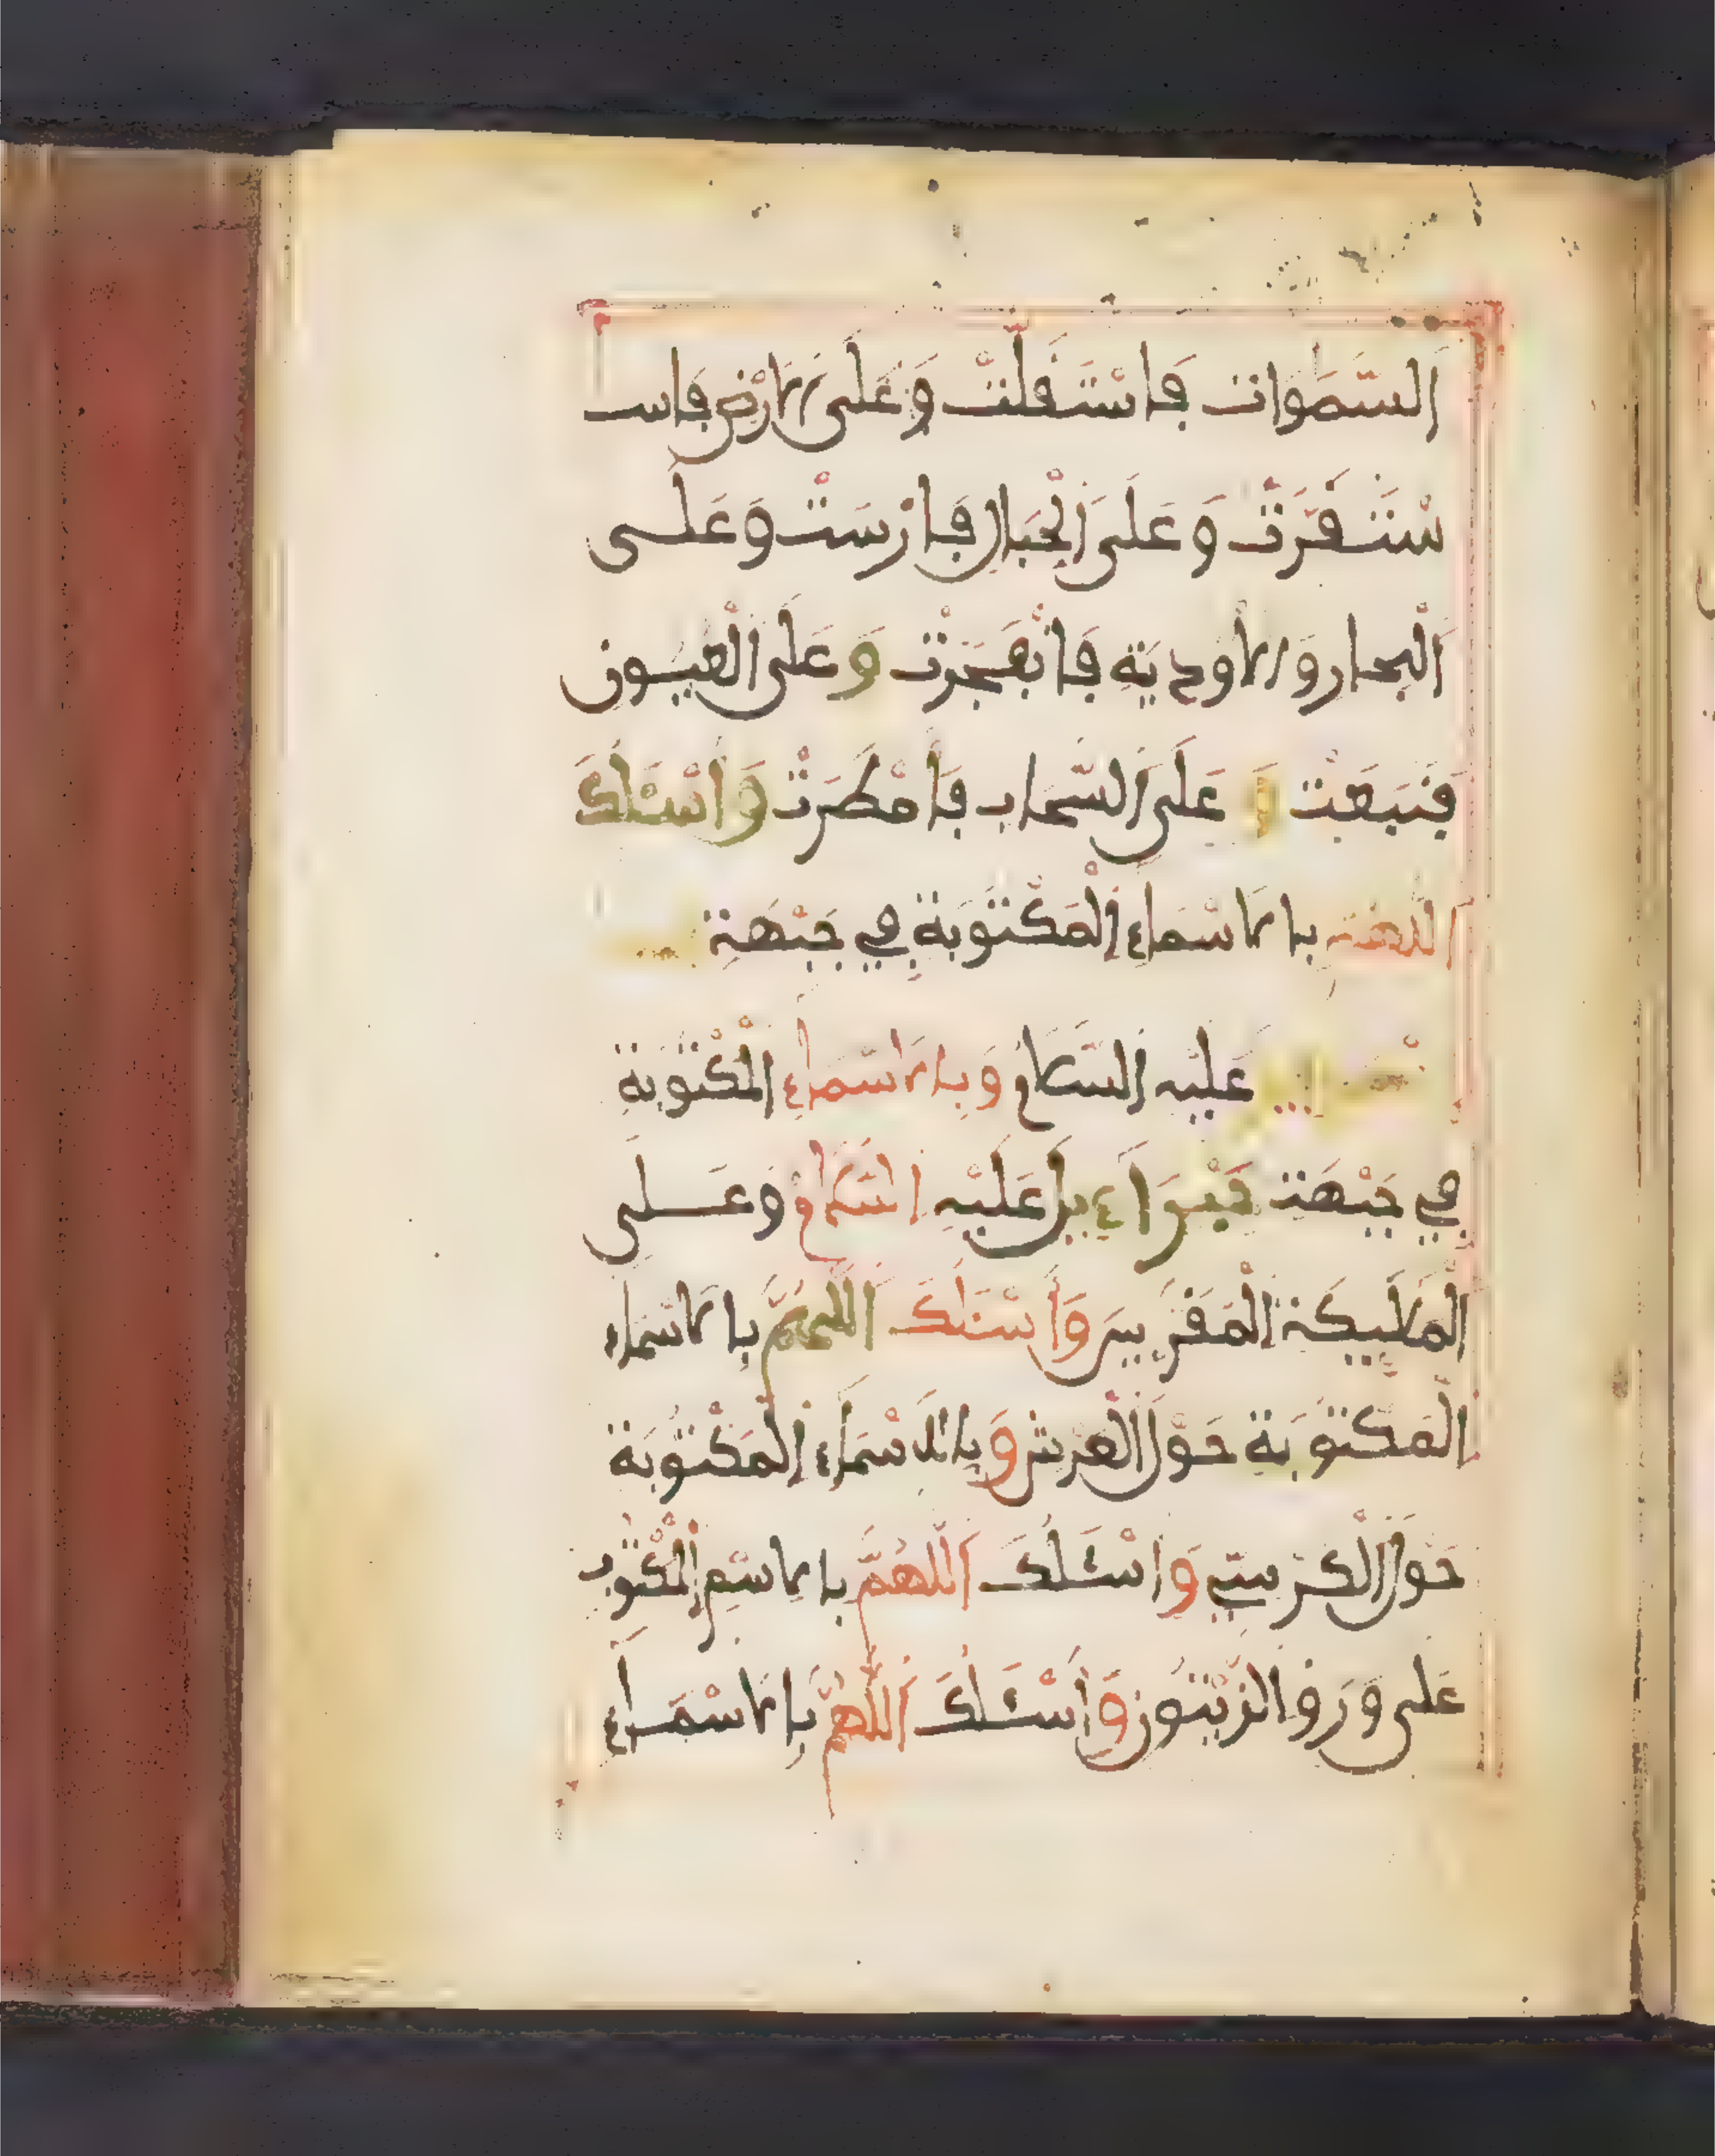 السَّمَوَات فَاسْتَقَلَّتْ وَعَلَى الَارْضِ فَاسـ
سْتَقَرَّتْ وَعَلَى الْجِبَالِ فَارْسَتْ وَعَلَى
الْبِحار وَالاودِيَةِ فَانْفَجَرَتْ وَعَلَى الْعُيُون
فَنَبَعَتْ وَ عَلَى السَّحاب فَأَمْطَرَتْ وَاسْئَلُكَ
اللهم بِالاسْمَاءِ الْمَكْتُوبَةِ فِي جَبْهَةِ
عَلَيْهِ السَّلامُ وَبِالاسْمَاءِ الْمَكْتُوبَةِ
فِي جَبْهَة جَبْرَاءِيلَ عَلَيْهِ السَّلامُ وَعَلَى
الْمَلَيِكَةِ الْمُقَرَّبِينَ وَأَسْئَلُكَ اللهُمَّ بِالاسْمَاءِ
الْمَكْتُوبَةِ حَوْلَ الْعَرْشِ وَبِالاسْمَاءِ الْمَكْتُوبَةِ
حَوْلَ الْكُرْسِيِّ وَاسْئَلُكَ اللّهُمَّ بِالاسْمِ الْمَكْتُوب
عَلَى وَرَقِ الزَّيْتُونِ وَأَسْئَلُكَ اللّهُمَّ بِالاسْمَاءِ